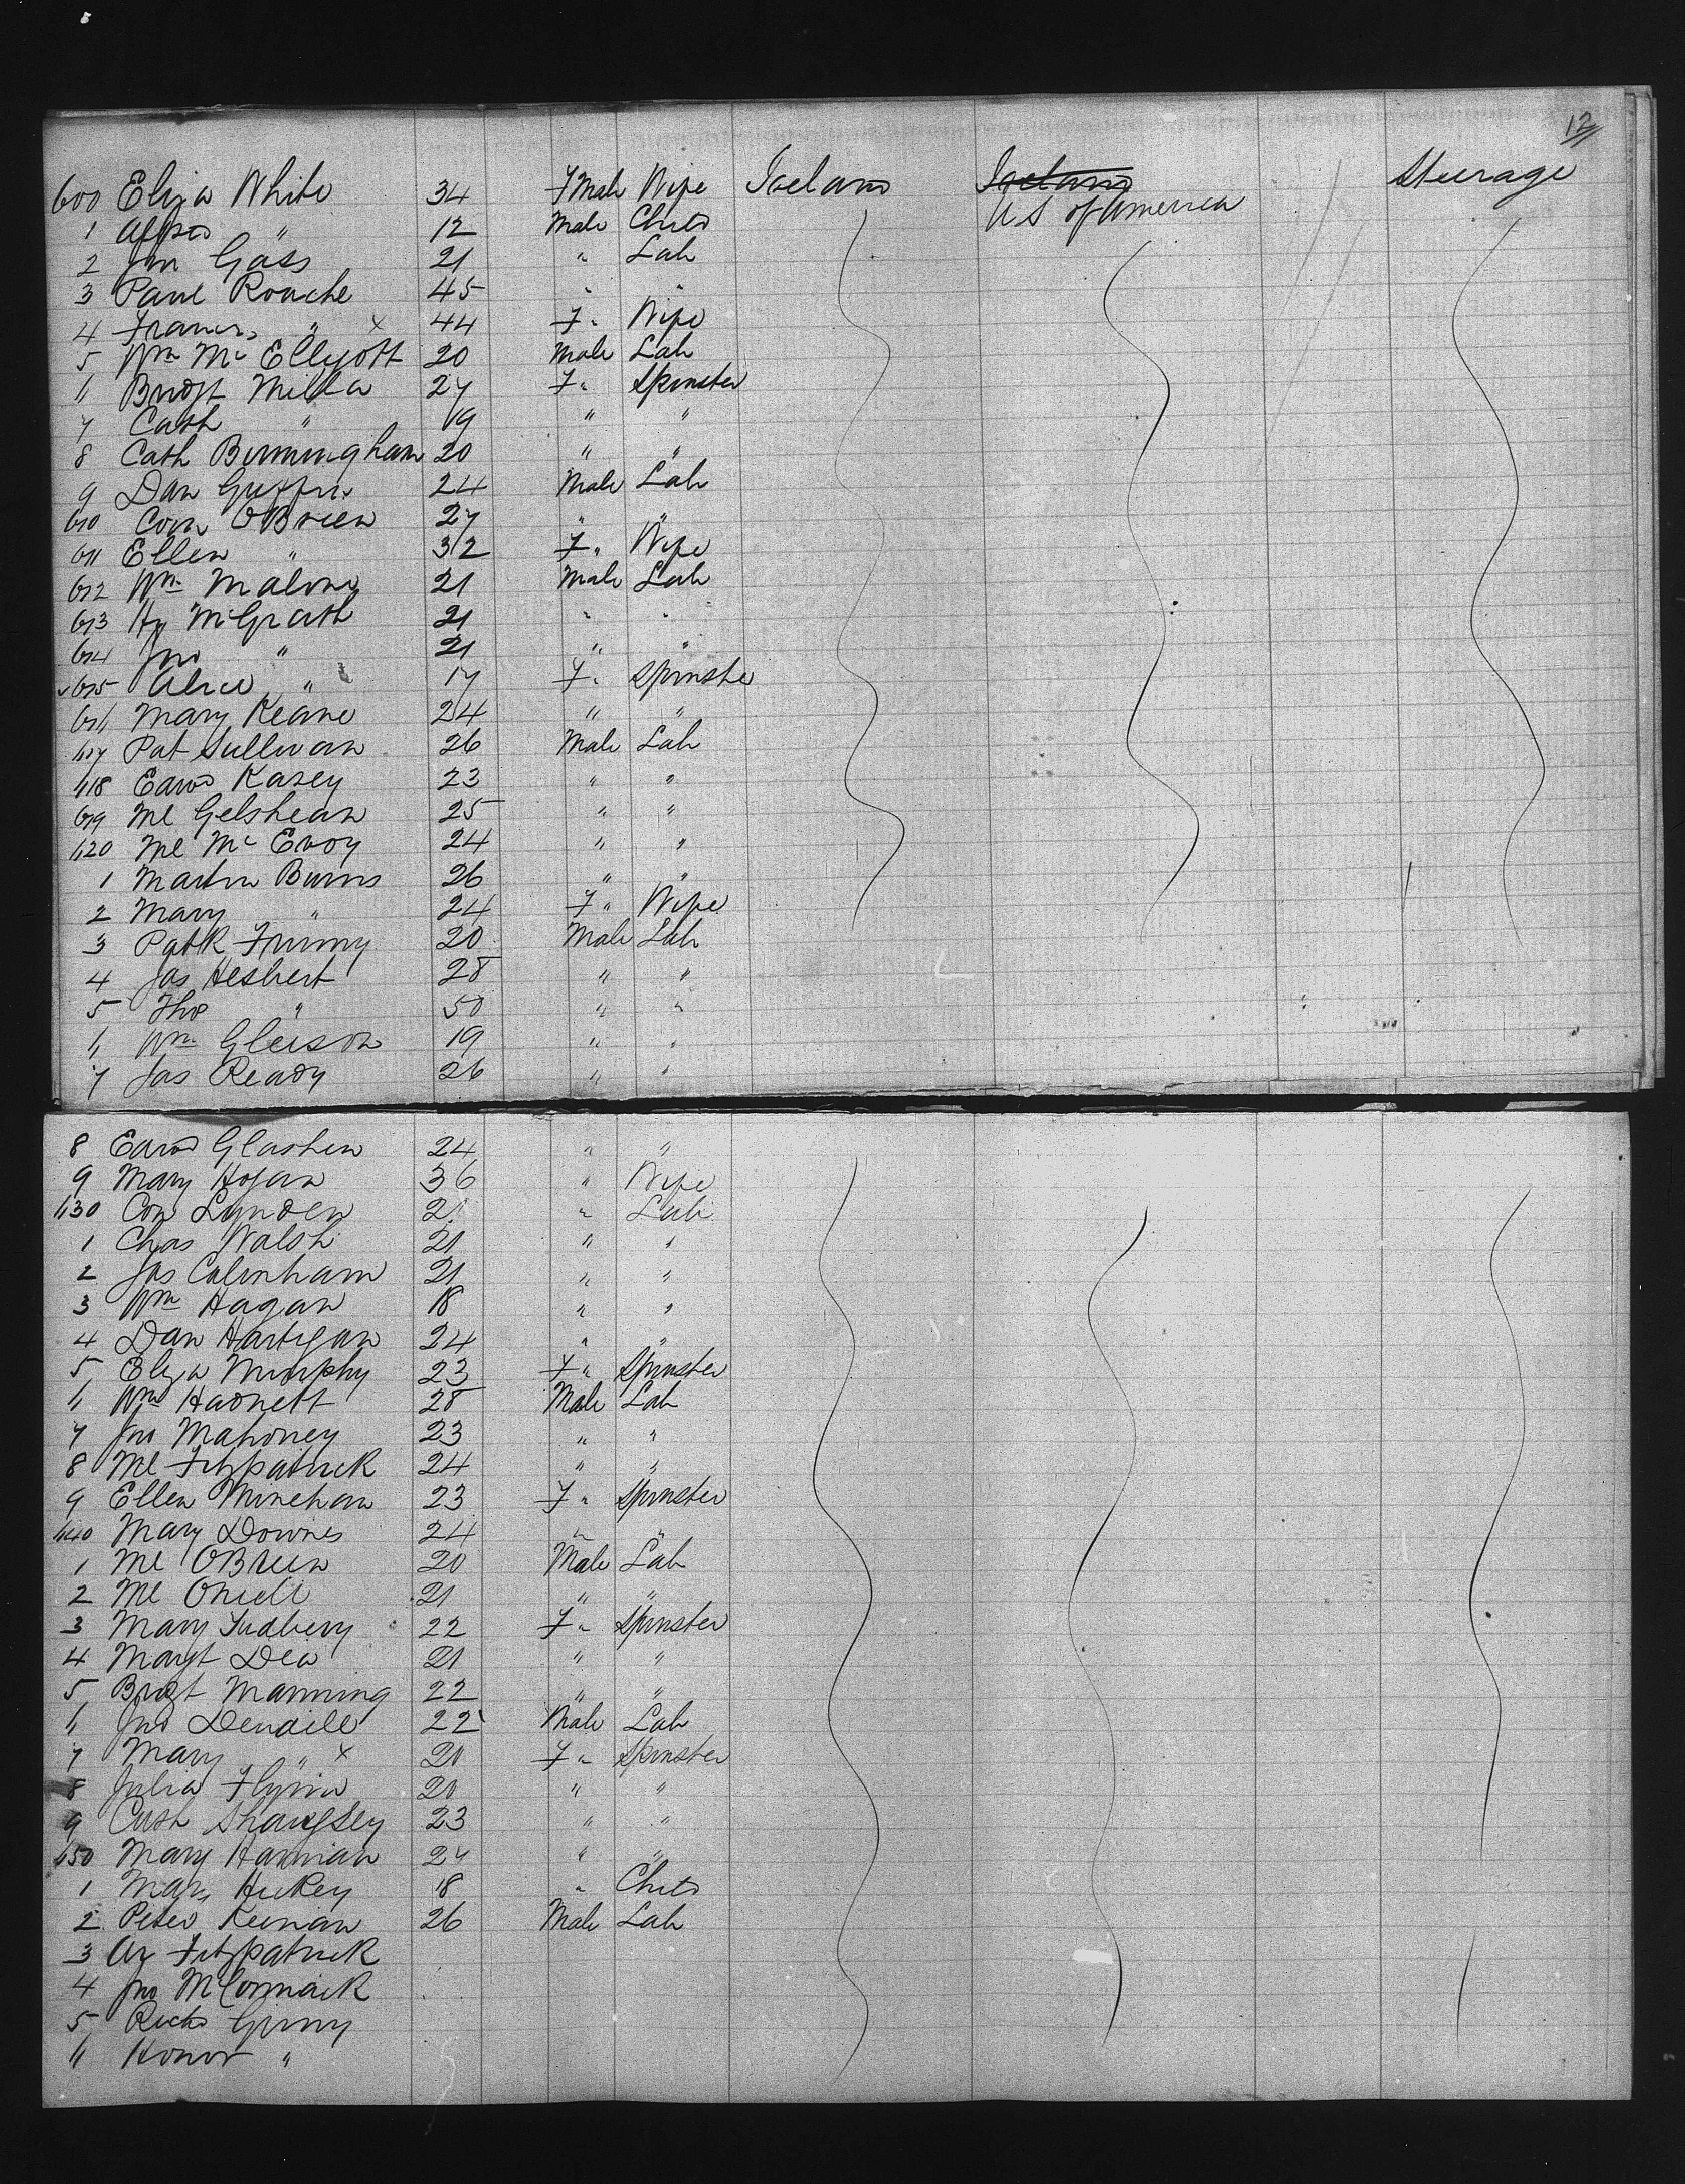 12
600 Eliza White 34 FMale Wife Ireland Ireland Steerage
US of America
1 Alfred " 12 Male Child
2 Jno Gass 21 " Lab
3 Paul Rouche 45 " "
4 Frances " x 44 F " Wife
5 Wm McEllyott 20 Male Lab
6 Bridgt Milla 27 F " Spinster
7 Cath " 19 " "
8 Cath Birmingham 20 " "
9 Dan Griffin 24 Male Lab
610 Corn OBrien 27 " "
611 Ellen " 32 F " Wife
612 Wm Malone 21 Male Lab
613 Hy McGrath 21 " "
614 Jno " 21 " "
615 Alice " 17 F " Spinster
616 Mary Keane 24 " "
617 Pat Sullivan 26 Male Lab
618 Edwd Kasey 23 " "
619 Ml Gelshean 25 " "
620 Ml McEvoy 24 " "
1 Martin Burns 26 " "
2 Mary " 24 F " Wife
3 Patk 20 Male Lab
4 Jas Hesbert 28 " "
5 Tho " 50 " "
6 Wm Gleison 19 " "
7 Jas Ready 26 " "
8 Edwd Glashen 24 " "
9 Mary Hogan 36 " Wife
630 Con Lynden " Lab
1 Chas Walsh 21 " "
2 Jas Calinham 21 " "
3 Wm Hagan 18 " "
4 Dan Hartigan 24 " "
5 Eliza Murphy 23 F " Spinster
6 Wm Hadnett 28 Male Lab
7 Jno Mahoney 23 " "
8 Ml Fitzpatrick 24 " "
9 Ellen Minehan 23 F " Spinster
640 Mary Downes 24 " "
1 Ml OBrien 20 Male Lab
2 Ml Oneill 21 " "
3 Mary 22 F " Spinster
4 Margt Dea 21 " "
5 Bridgt Manning 22 " "
6 Jno 22 Male Lab
7 Mary " x 20 F " Spinster
8 Julia Flynn 20 " "
9 Cath 23 " "
650 Mary Hannan " "
1 Mary Hickey 18 " Child
2 Peter Keenan 26 Male Lab
3 Fitzpatrick
4 Jno McCormack
5 Richd
6 Honor "